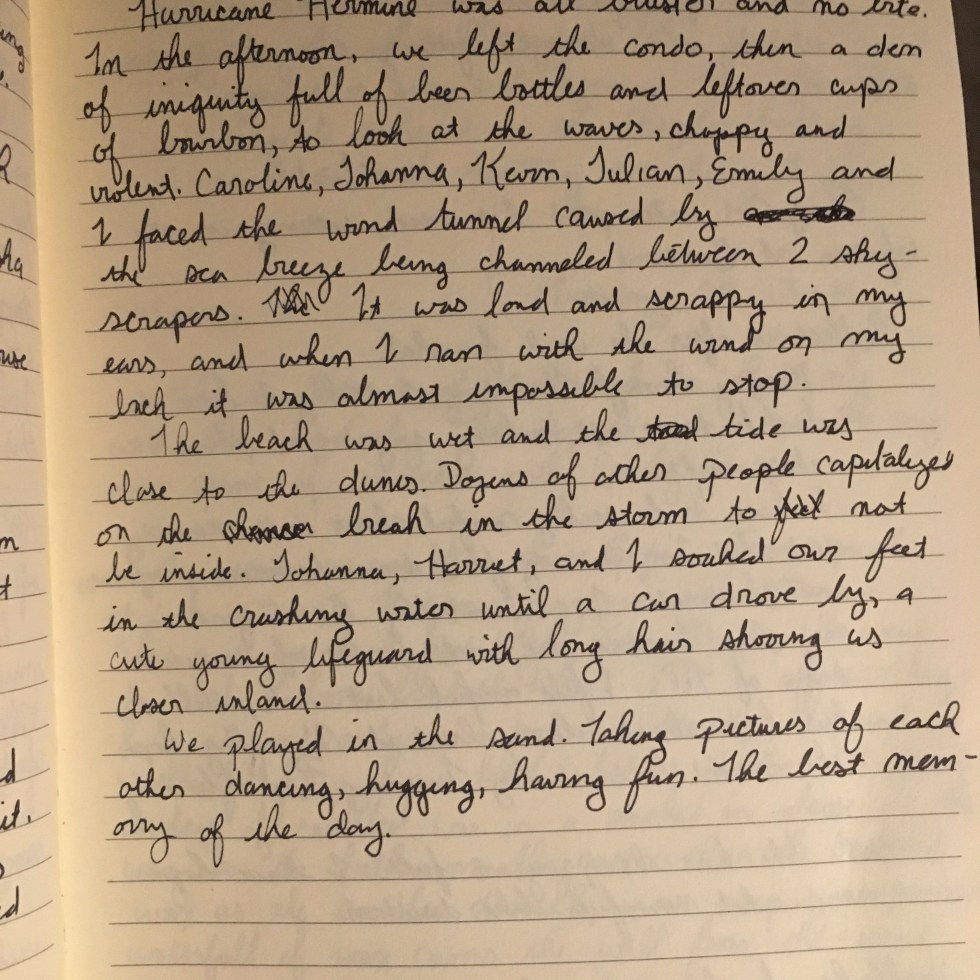 Hurricane Hermine was all bluster and no bite.
In the afternoon, we left the condo, then a den
of iniquity full of beer bottles and leftover cups
of bourbon, to look at the waves, choppy and
violent. Caroline, Johanna, Kevin, Julian, Emily and
I faced the wind tunnel caused by
the sea breeze being channeled between 2 sky-
scrapers. It was loud and scrappy in my
ears, and when I ran with the wind on my
back it was almost impossible to stop.
The beach was wet and the tide was
close to the dunes. Dozens of other people capitalized
on the break in the storm to not
be inside. Johanna, Harriet, and I soaked our feet
in the crashing water until a car drove by, a
cute young lifeguard with long hair shooing us
closer inland.
We played in the sand. Taking pictures of each
other dancing, hugging, having fun. The best mem-
ory of the day.